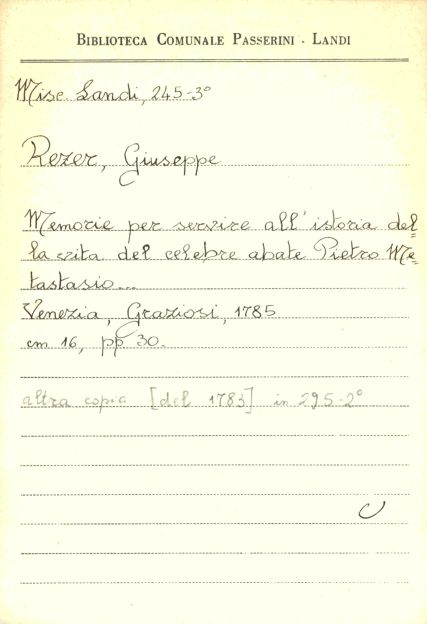 BIBLIOTECA COMUNALE PASSERINI - LANDI
Misc. Landi, 245-3°
Rezer, Giuseppe
Memorie per servire all'istoria del=
la vita del celebre abate Pietro Me=
tastasio...
Venezia, Graziosi, 1785
cm 16, pp 30.
altra copia [del 1783] in 295-2°